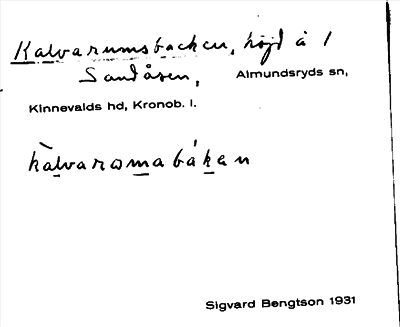 Kalvarumsbacken, höjd å 1
Sandåsen, Almundsryds sn,
Kinnevalds hd, Kronob. l.
kàlvarωmabákan
Sigvard Bengtson 1931